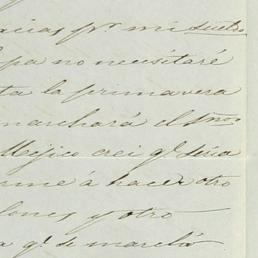 acias pr. mi suelro
pa no necesitaré
ta la primavera
marchará el Sr.
Mejico crei qe. seria
rme á hacer otro
lones y otro
a qe. se marchó